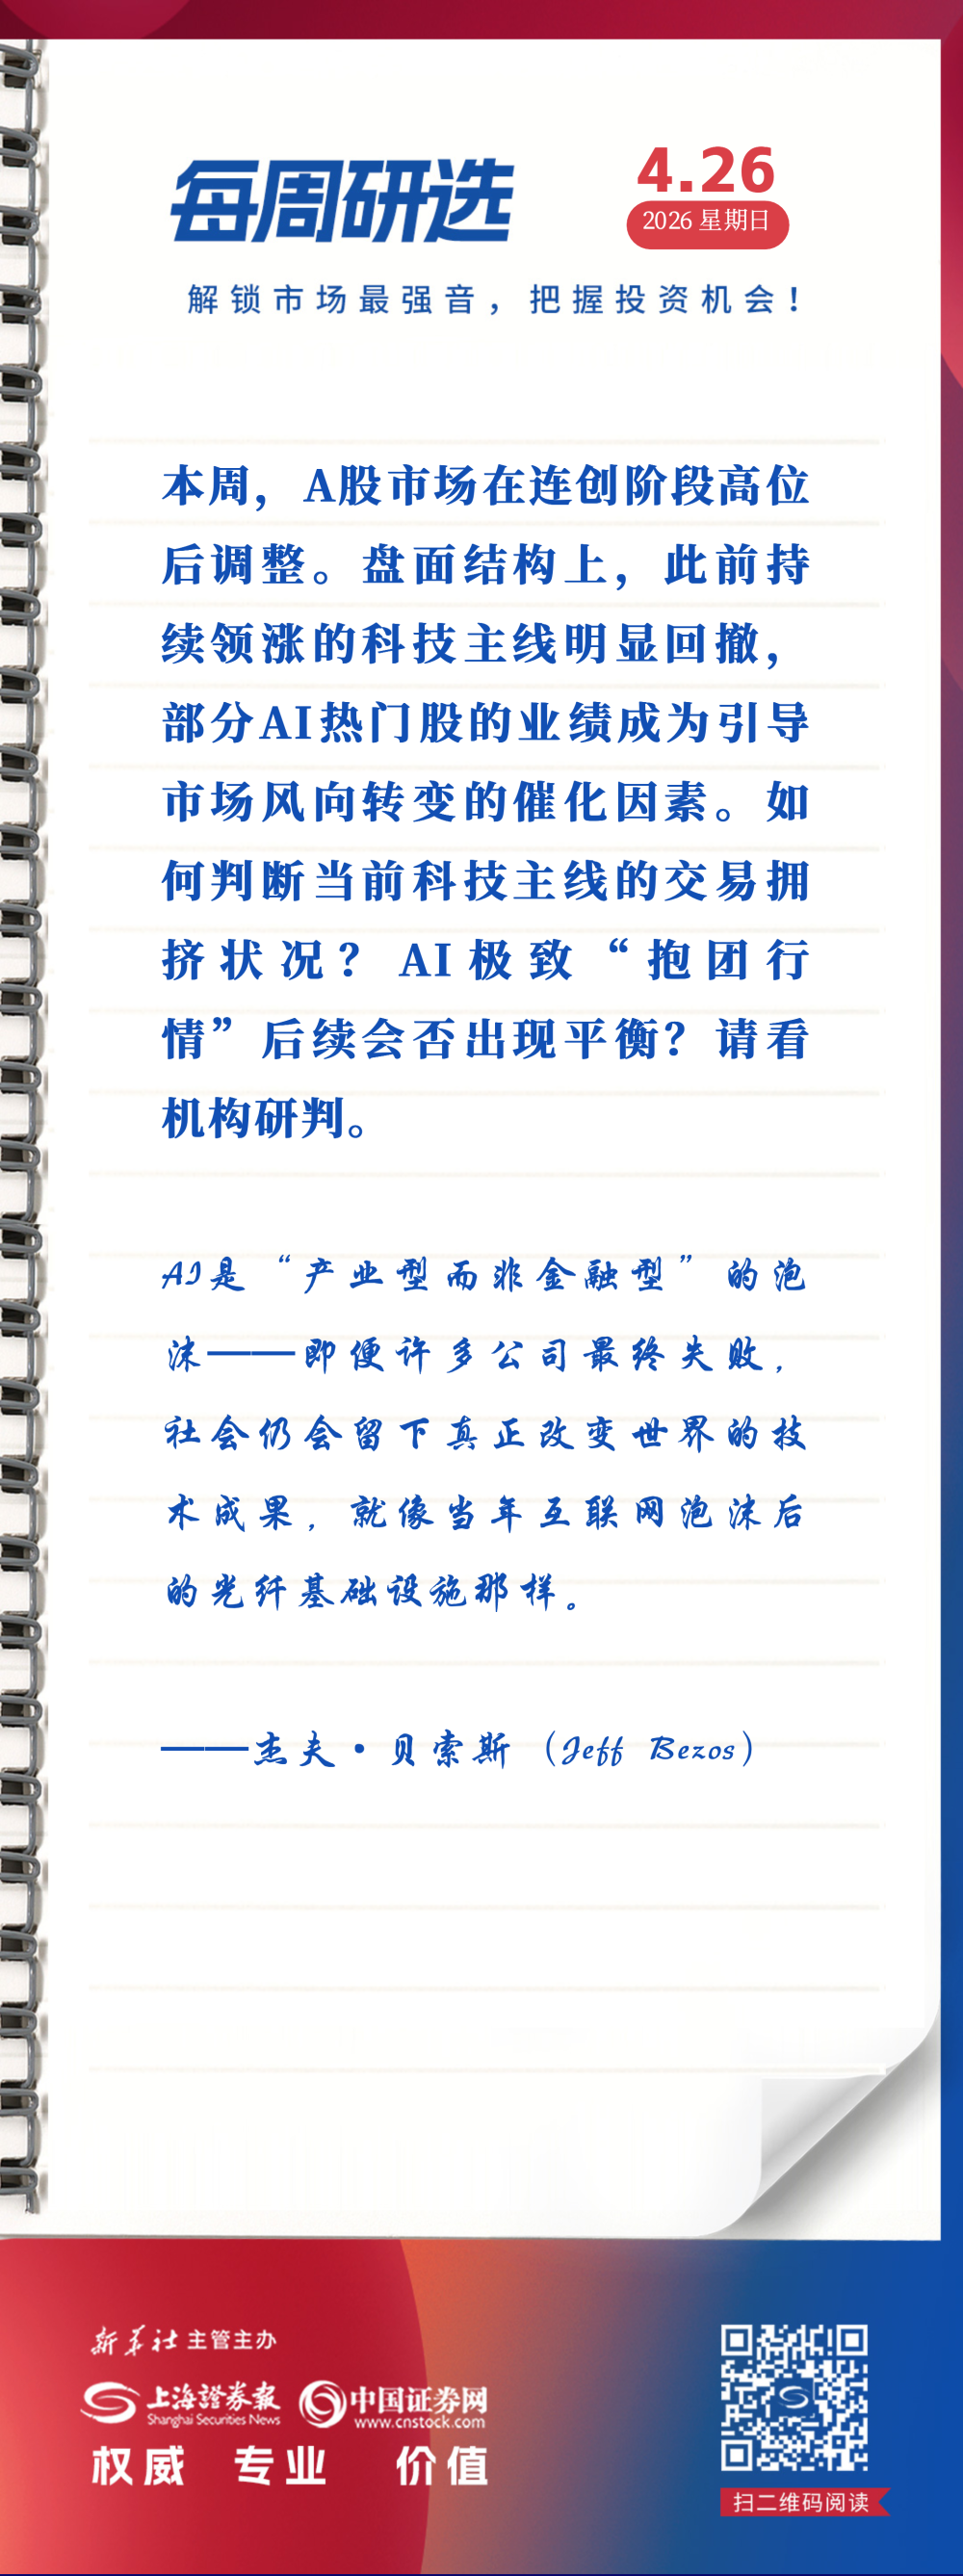 每周研选
4.26
2026 星期日
解锁市场最强音，把握投资机会！
本周，A股市场在连创阶段高位
后调整。盘面结构上，此前持
续领涨的科技主线明显回撤，
部分AI热门股的业绩成为引导
市场风向转变的催化因素。如
何判断当前科技主线的交易拥
挤状况？AI极致“抱团行
情”后续会否出现平衡？请看
机构研判。
AI是“产业型而非金融型”的泡
沫——即便许多公司最终失败，
社会仍会留下真正改变世界的技
术成果，就像当年互联网泡沫后
的光纤基础设施那样。
——杰夫·贝索斯（Jeff Bezos）
新华社 主管主办
上海證券報 中国证券网
Shanghai Securities News www.cnstock.com
权威 专业 价值
扫二维码阅读